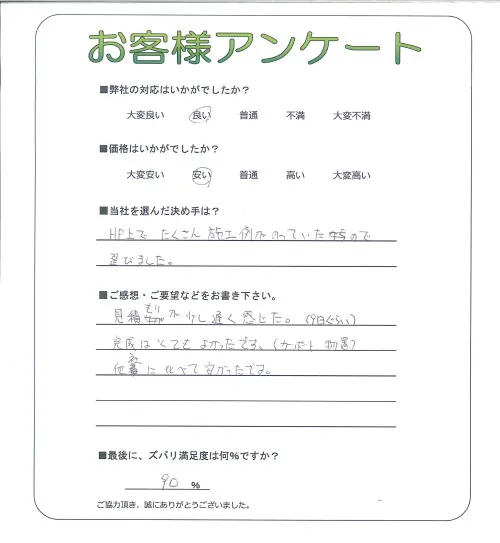 お客様アンケート
■弊社の対応はいかがでしたか？
大変良い 良い 普通 不満 大変不満
■価格はいかがでしたか？
大変安い 安い 普通 高い 大変高い
■当社を選んだ決め手は？
HP上で たくさん 施工例がのっていたので
選びました。
■ご感想・ご要望などをお書き下さい。
見積もりが少し遅く感じた。(9日ぐらい)
完成はとてもよかったです。(カーポート 物置)
他社に比べて安かったです。
■最後に、ズバリ満足度は何％ですか？
90 ％
ご協力頂き、誠にありがとうございました。